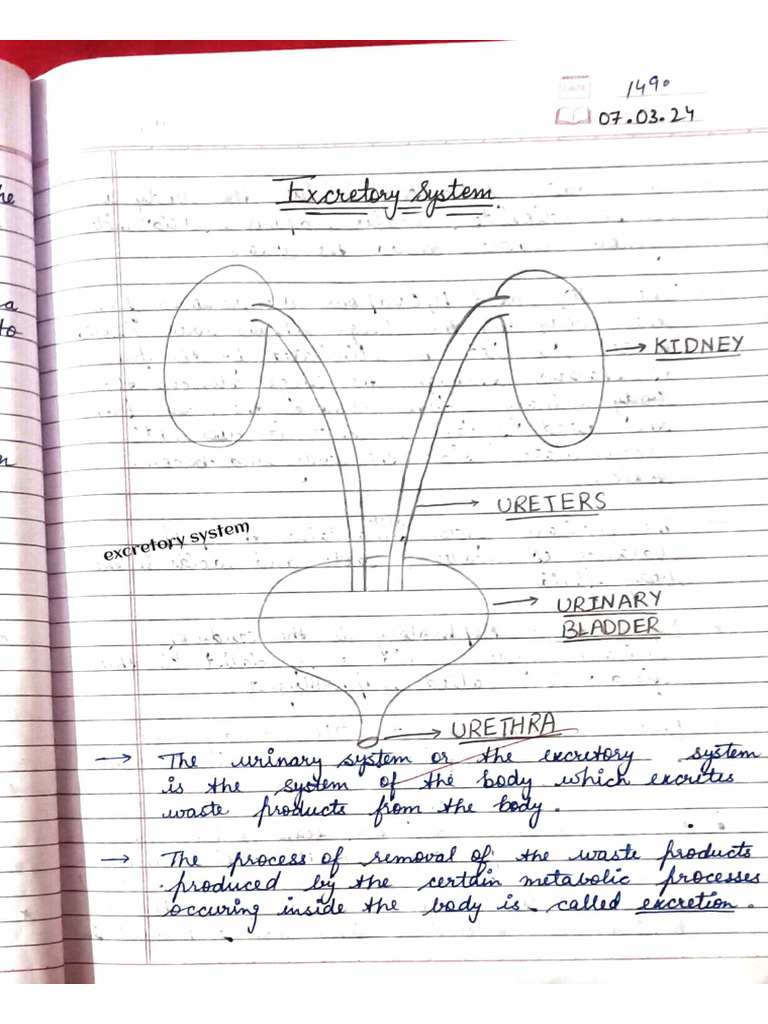 he
a
to
n
DATE
1490
07.03.24
Excretory System
KIDNEY
URETERS
excretory system
URINARY
BLADDER
URETHRA
→ The urinary system or the excretory system
is the system of the body which excretes
waste products from the body.
→ The process of removal of the waste products
produced by the certain metabolic processes
occuring inside the body is called excretion.